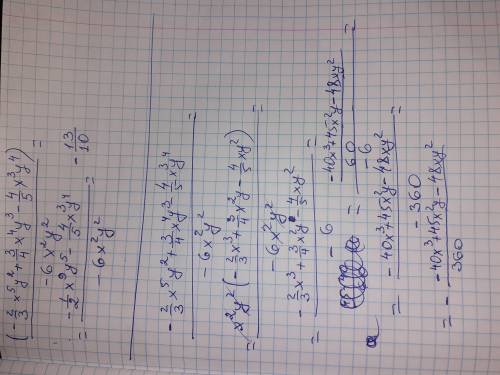 (-2/3 x^5 y^2 + 3/4 x^4 y^3 - 4/5 x^3 y^4) / (-6x^2y^2) =
= (-1/2 x^9 y^5 - 4/5 x^3 y^4) / (-6x^2y^2) - 13/10
(-2/3 x^5 y^2 + 3/4 x^4 y^3 - 4/5 x^3 y^4) / (-6x^2y^2) =
= x^2y^2(-2/3 x^3 + 3/4 x^2y - 4/5 xy^2) / (-6x^2y^2) =
= (-2/3 x^3 + 3/4 x^2y - 4/5 xy^2) / (-6) =
= ((-40x^3+45x^2y-48xy^2) / 60) / (-6) =
= (-40x^3+45x^2y-48xy^2) / (-360) =
= - (-40x^3+45x^2y-48xy^2) / 360